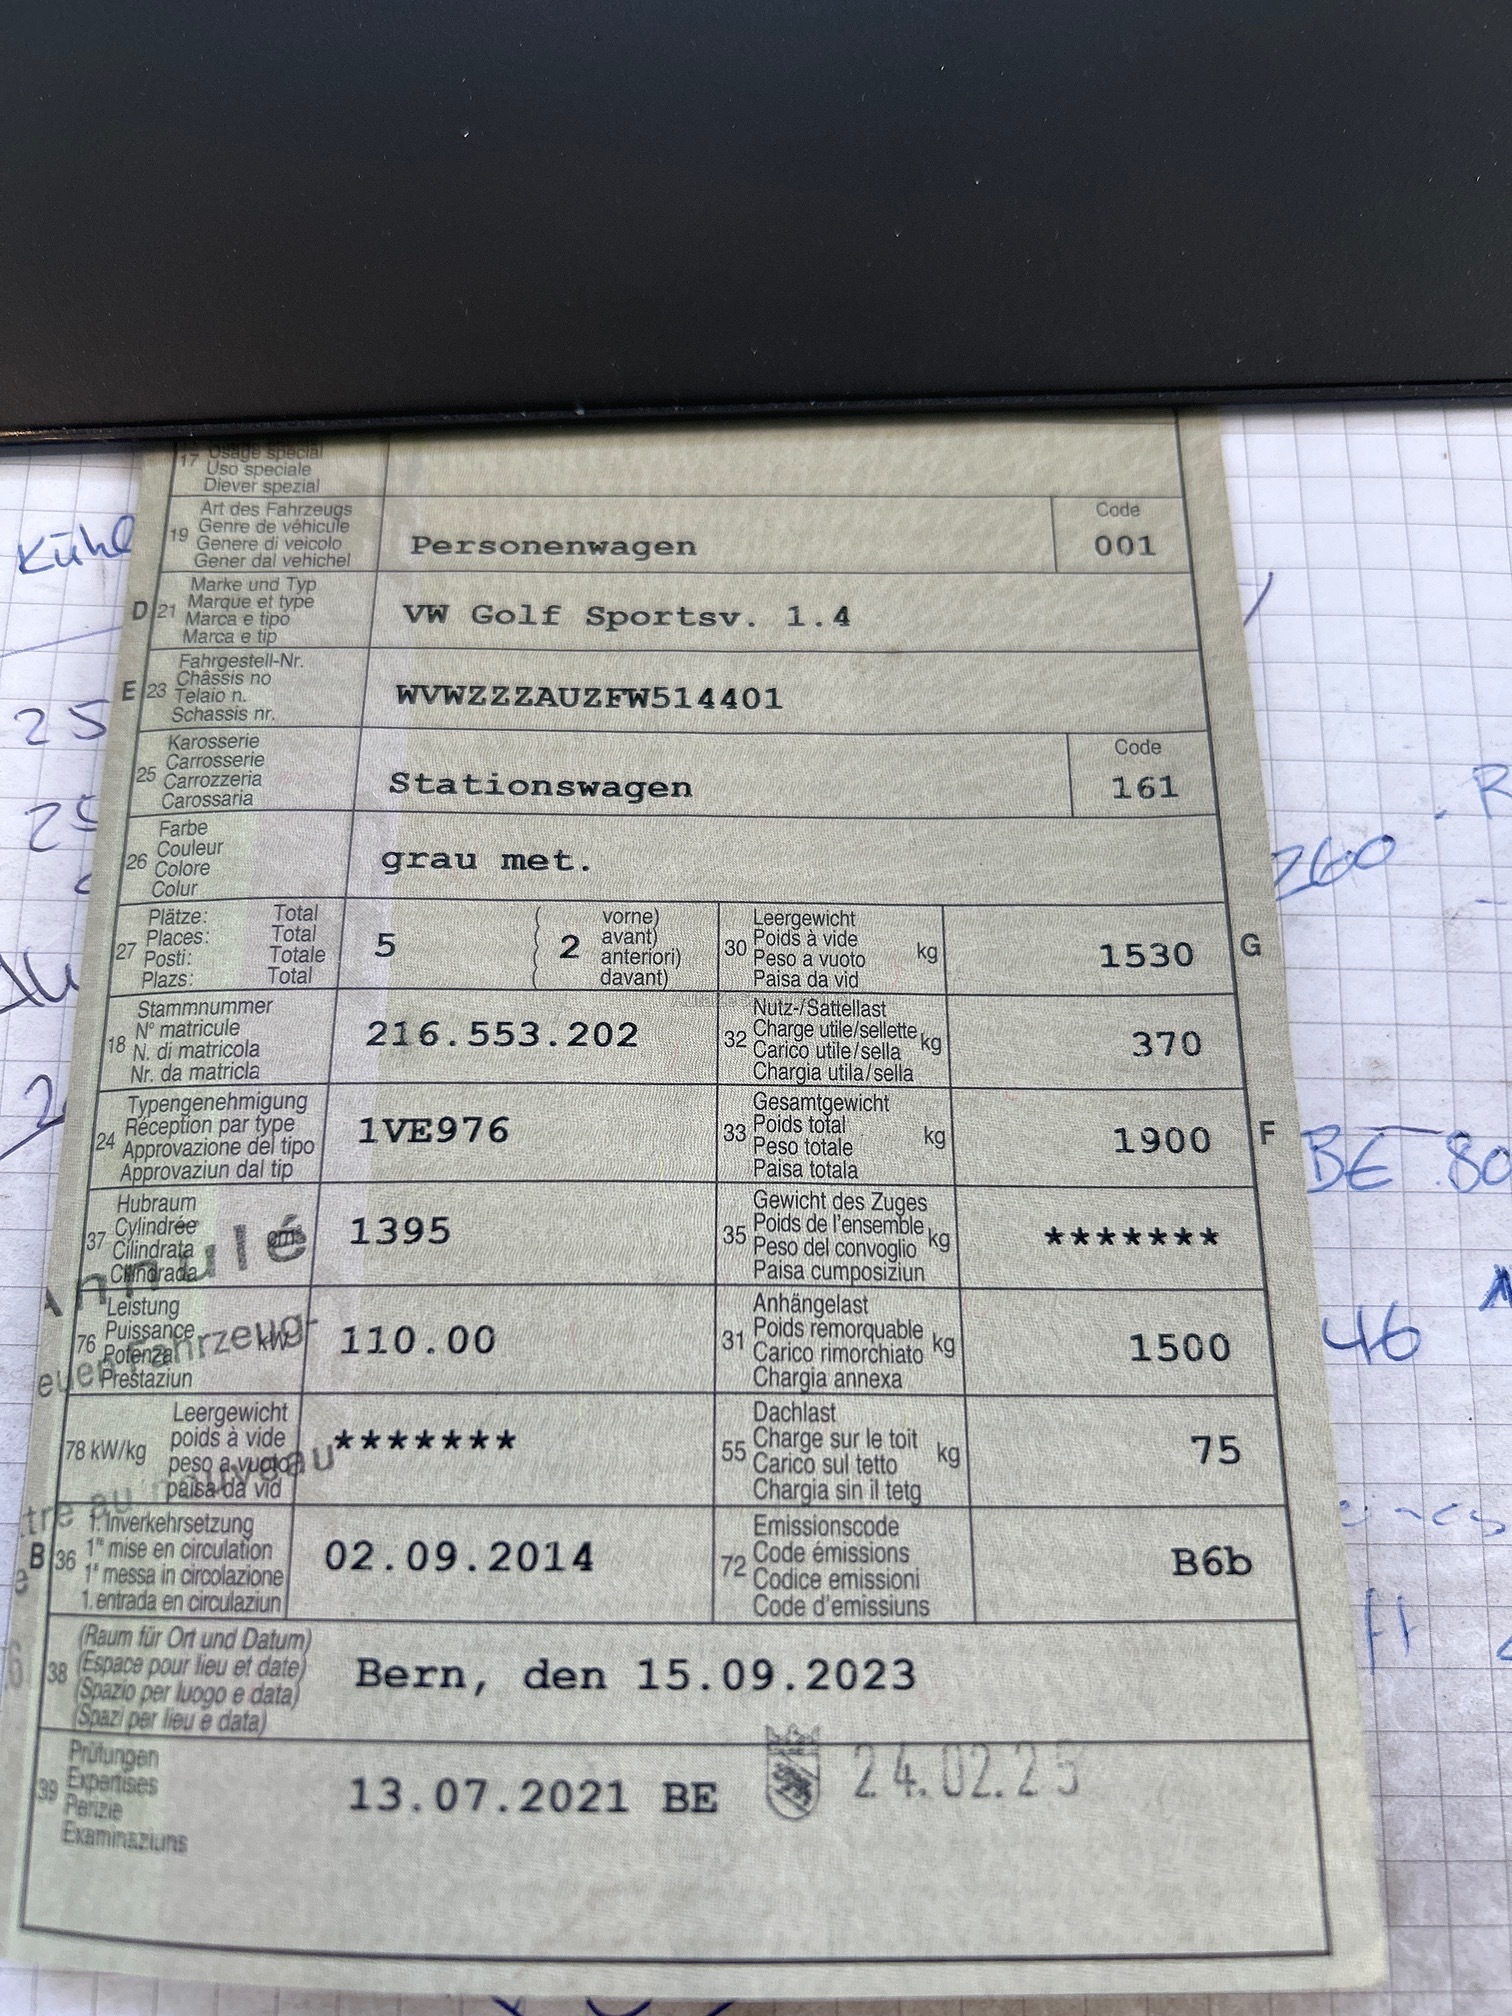 17 Usage spécial
Uso speciale
Diever spezial
19 Art des Fahrzeugs
Genre de véhicule
Genere di veicolo
Gener dal vehichel
Personenwagen
Code
001
D 21 Marke und Typ
Marque et type
Marca e tipo
Marca e tip
VW Golf Sportsv. 1.4
E 23 Fahrgestell-Nr.
Châssis no
Telaio n.
Schassis nr.
WVWZZZAUZFW514401
25 Karosserie
Carrosserie
Carrozzeria
Carossaria
Stationswagen
Code
161
26 Farbe
Couleur
Colore
Colur
grau met.
27 Plätze: Total
Places: Total
Posti: Totale
Plazs: Total
5 ( 2 vorne)
( avant)
( anteriori)
( davant)
30 Leergewicht
Poids à vide kg
Peso a vuoto
Paisa da vid
1530 G
18 Stammnummer
N° matricule
N. di matricola
Nr. da matricla
216.553.202
32 Nutz-/Sattellast
Charge utile/sellette kg
Carico utile/sella
Chargia utila/sella
370
24 Typengenehmigung
Réception par type
Approvazione del tipo
Approvaziun dal tip
1VE976
33 Gesamtgewicht
Poids total kg
Peso totale
Paisa totala
1900 F
37 Hubraum
Cylindrée
Cilindrata
Cilindrada
1395
Annulé
35 Gewicht des Zuges
Poids de l'ensemble kg
Peso del convoglio
Paisa cumposiziun
*******
76 Leistung
Puissance kW
Potenza
Prestaziun
110.00
Fahrzeug-
31 Anhängelast
Poids remorquable kg
Carico rimorchiato
Chargia annexa
1500
78 kW/kg Leergewicht
poids à vide
peso a vuoto
paisa da vid
*******
au nouveau
55 Dachlast
Charge sur le toit kg
Carico sul tetto
Chargia sin il tetg
75
B 36 1. Inverkehrsetzung
1re mise en circulation
1a messa in circolazione
1. entrada en circulaziun
02.09.2014
72 Emissionscode
Code émissions
Codice emissioni
Code d'emissiuns
B6b
38 (Raum für Ort und Datum)
(Espace pour lieu et date)
(Spazio per luogo e data)
(Spazi per lieu e data)
Bern, den 15.09.2023
39 Prüfungen
Expertises
Perizie
Examinaziuns
13.07.2021 BE
24.02.25
Kühl
25
260
BE 80
46